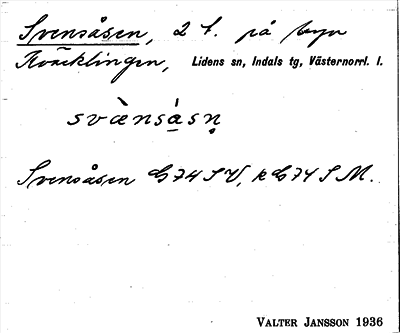 Svensåsen, 2 t. på byn
Kväcklingen, Lidens sn, Indals tg, Västernorrl. l.
svænsåsn
Svensåsen G74SV, k G74SM.
VALTER JANSSON 1936